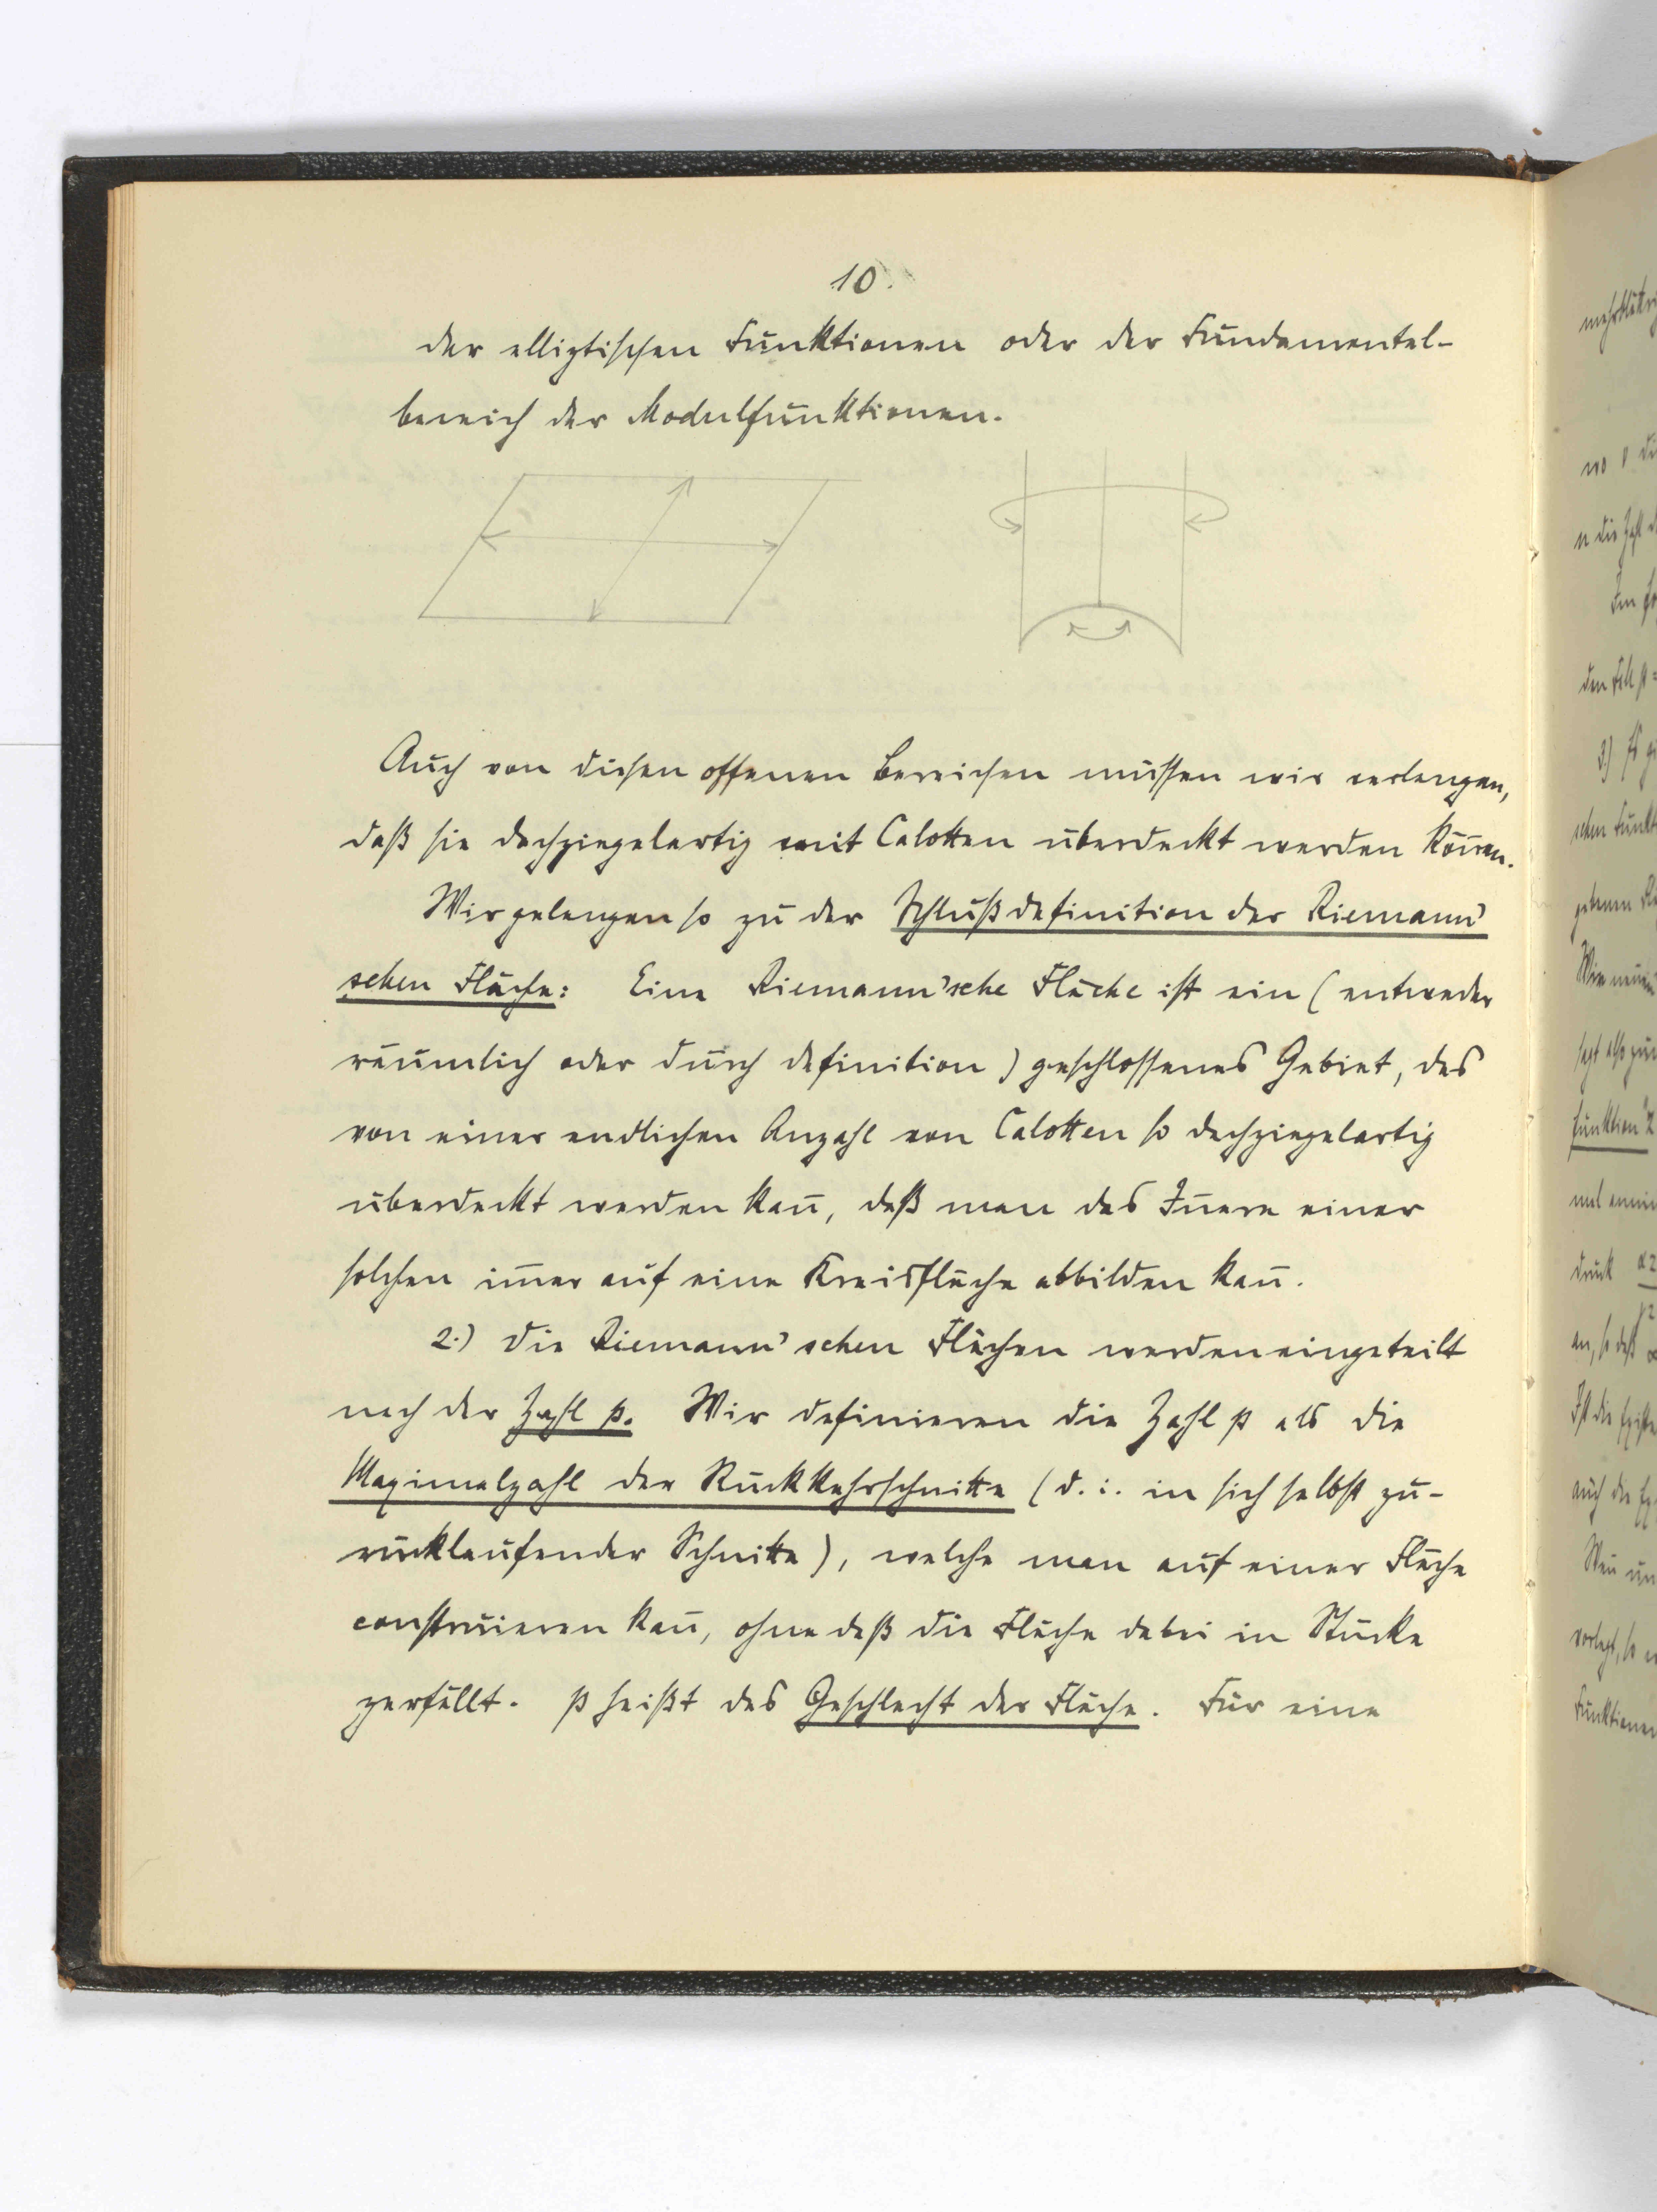 10.
der elliptischen Funktionen oder der Fundamental-
bereich der Modulfunktionen.
Auch von diesen offenen Bereichen müssen wir verlangen,
daß sie dachziegelartig mit Calotten überdeckt werden kön̄en.
Wir gelangen so zu der Schlußdefinition der Riemann'
schen Fläche: Eine Riemann'sche Fläche ist ein (entweder
räumlich oder durch Definition) geschlossenes Gebiet, das
von einer endlichen Anzahl von Calotten so dachziegelartig
überdeckt werden kan̄, daß man das In̄ere einer
solchen im̄er auf eine Kreisfläche abbilden kan̄.
2.) Die Riemann'schen Flächen werden eingeteilt
nach der Zahl p. Wir definieren die Zahl p als die
Maximalzahl der Rückkehrschnitte (d. i. in sich selbst zu-
rücklaufender Schnitte), welche man auf einer Fläche
construieren kan̄, ohne daß die Fläche dabei in Stücke
zerfällt. p heißt das Geschlecht der Fläche. Für eine
wo
n die Zahl
3)
schen
Wir
Funktion
druck
an, so daß
Ist die
auch die
vorlegt, so
Funktionen